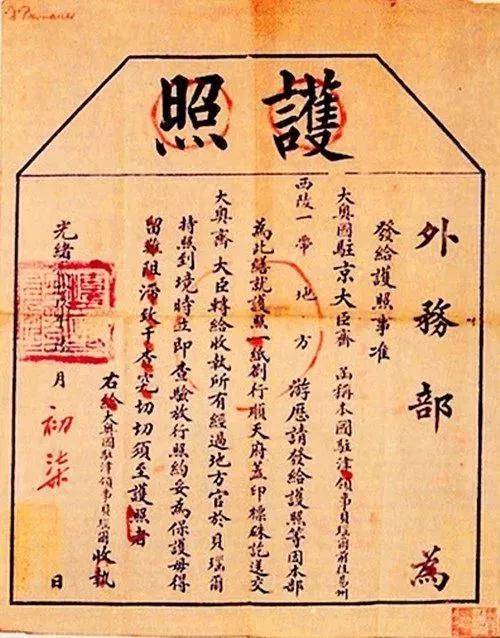 護照
外務部為
發給護照事准
大奧國駐京大臣齊 函稱本國駐津領事貝瑙爾前往易州
西陵一帶地方游歷請發給護照等因本部
為此繕就護照一紙劄行順天府蓋印標硃訖送交
大奧齊大臣轉給收執所有經過地方官於貝瑙爾
持照到境時立即查驗放行照約妥為保護毋得
留難阻滯致干查究切切須至護照者
右給大奧國駐津領事貝瑙爾收執
光緒 月初柒日